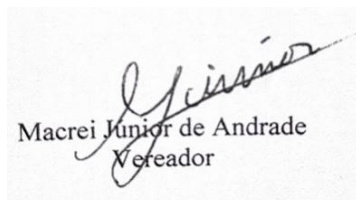 Junior
Macrei Júnior de Andrade
Vereador